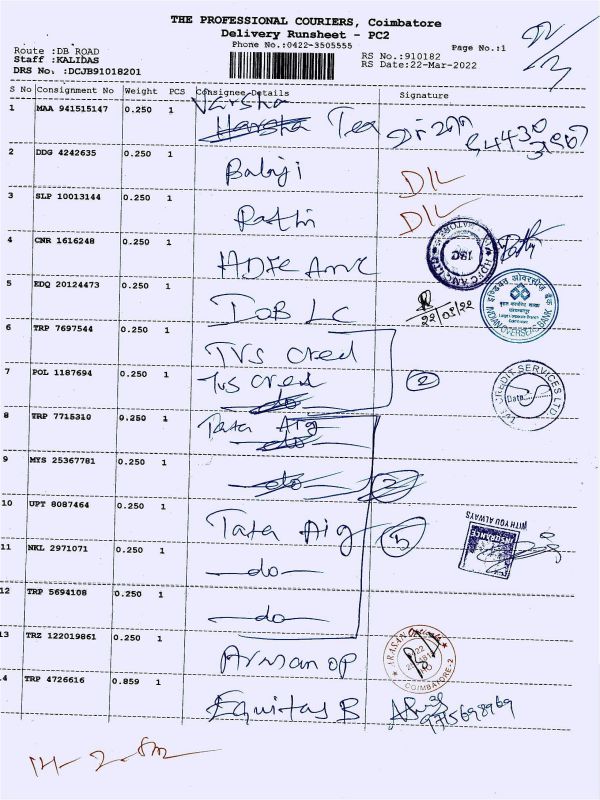 THE PROFESSIONAL COURIERS, Coimbatore
Delivery Runsheet - PC2
Phone No.:0422-3505555
Page No.:1
Route :DB ROAD
Staff :KALIDAS
DRS No. :DCJB91018201
RS No.:910182
RS Date:22-Mar-2022
S No Consignment No Weight PCS Consignee Details Signature
1 MAA 941515147 0.250 1 Varsha
Harsha Tea
2 DDG 4242635 0.250 1 Balaji DIL
3 SLP 10013144 0.250 1 Rathi DIL
4 CNR 1616248 0.250 1 HDFC
5 EDQ 20124473 0.250 1 IOB LC 22/03/22
6 TRP 7697544 0.250 1 TVS Cred
7 POL 1187694 0.250 1 TVS Cred 2
do
8 TRP 7715310 0.250 1 Tata Aig
do
9 MYS 25367781 0.250 1 do 2
10 UPT 8087464 0.250 1 Tata Aig 5
11 NKL 2971071 0.250 1 -do-
12 TRP 5694108 0.250 1 -do-
13 TRZ 122019861 0.250 1 Arman op
14 TRP 4726616 0.859 1 Equitas B 9715698969
इण्डियन ओवरसीज़ बैंक
INDIAN OVERSEAS BANK
TVS CREDIT SERVICES LTD
Date
WITH YOU ALWAYS
INSURANCE
ARASAN
COIMBATORE-2